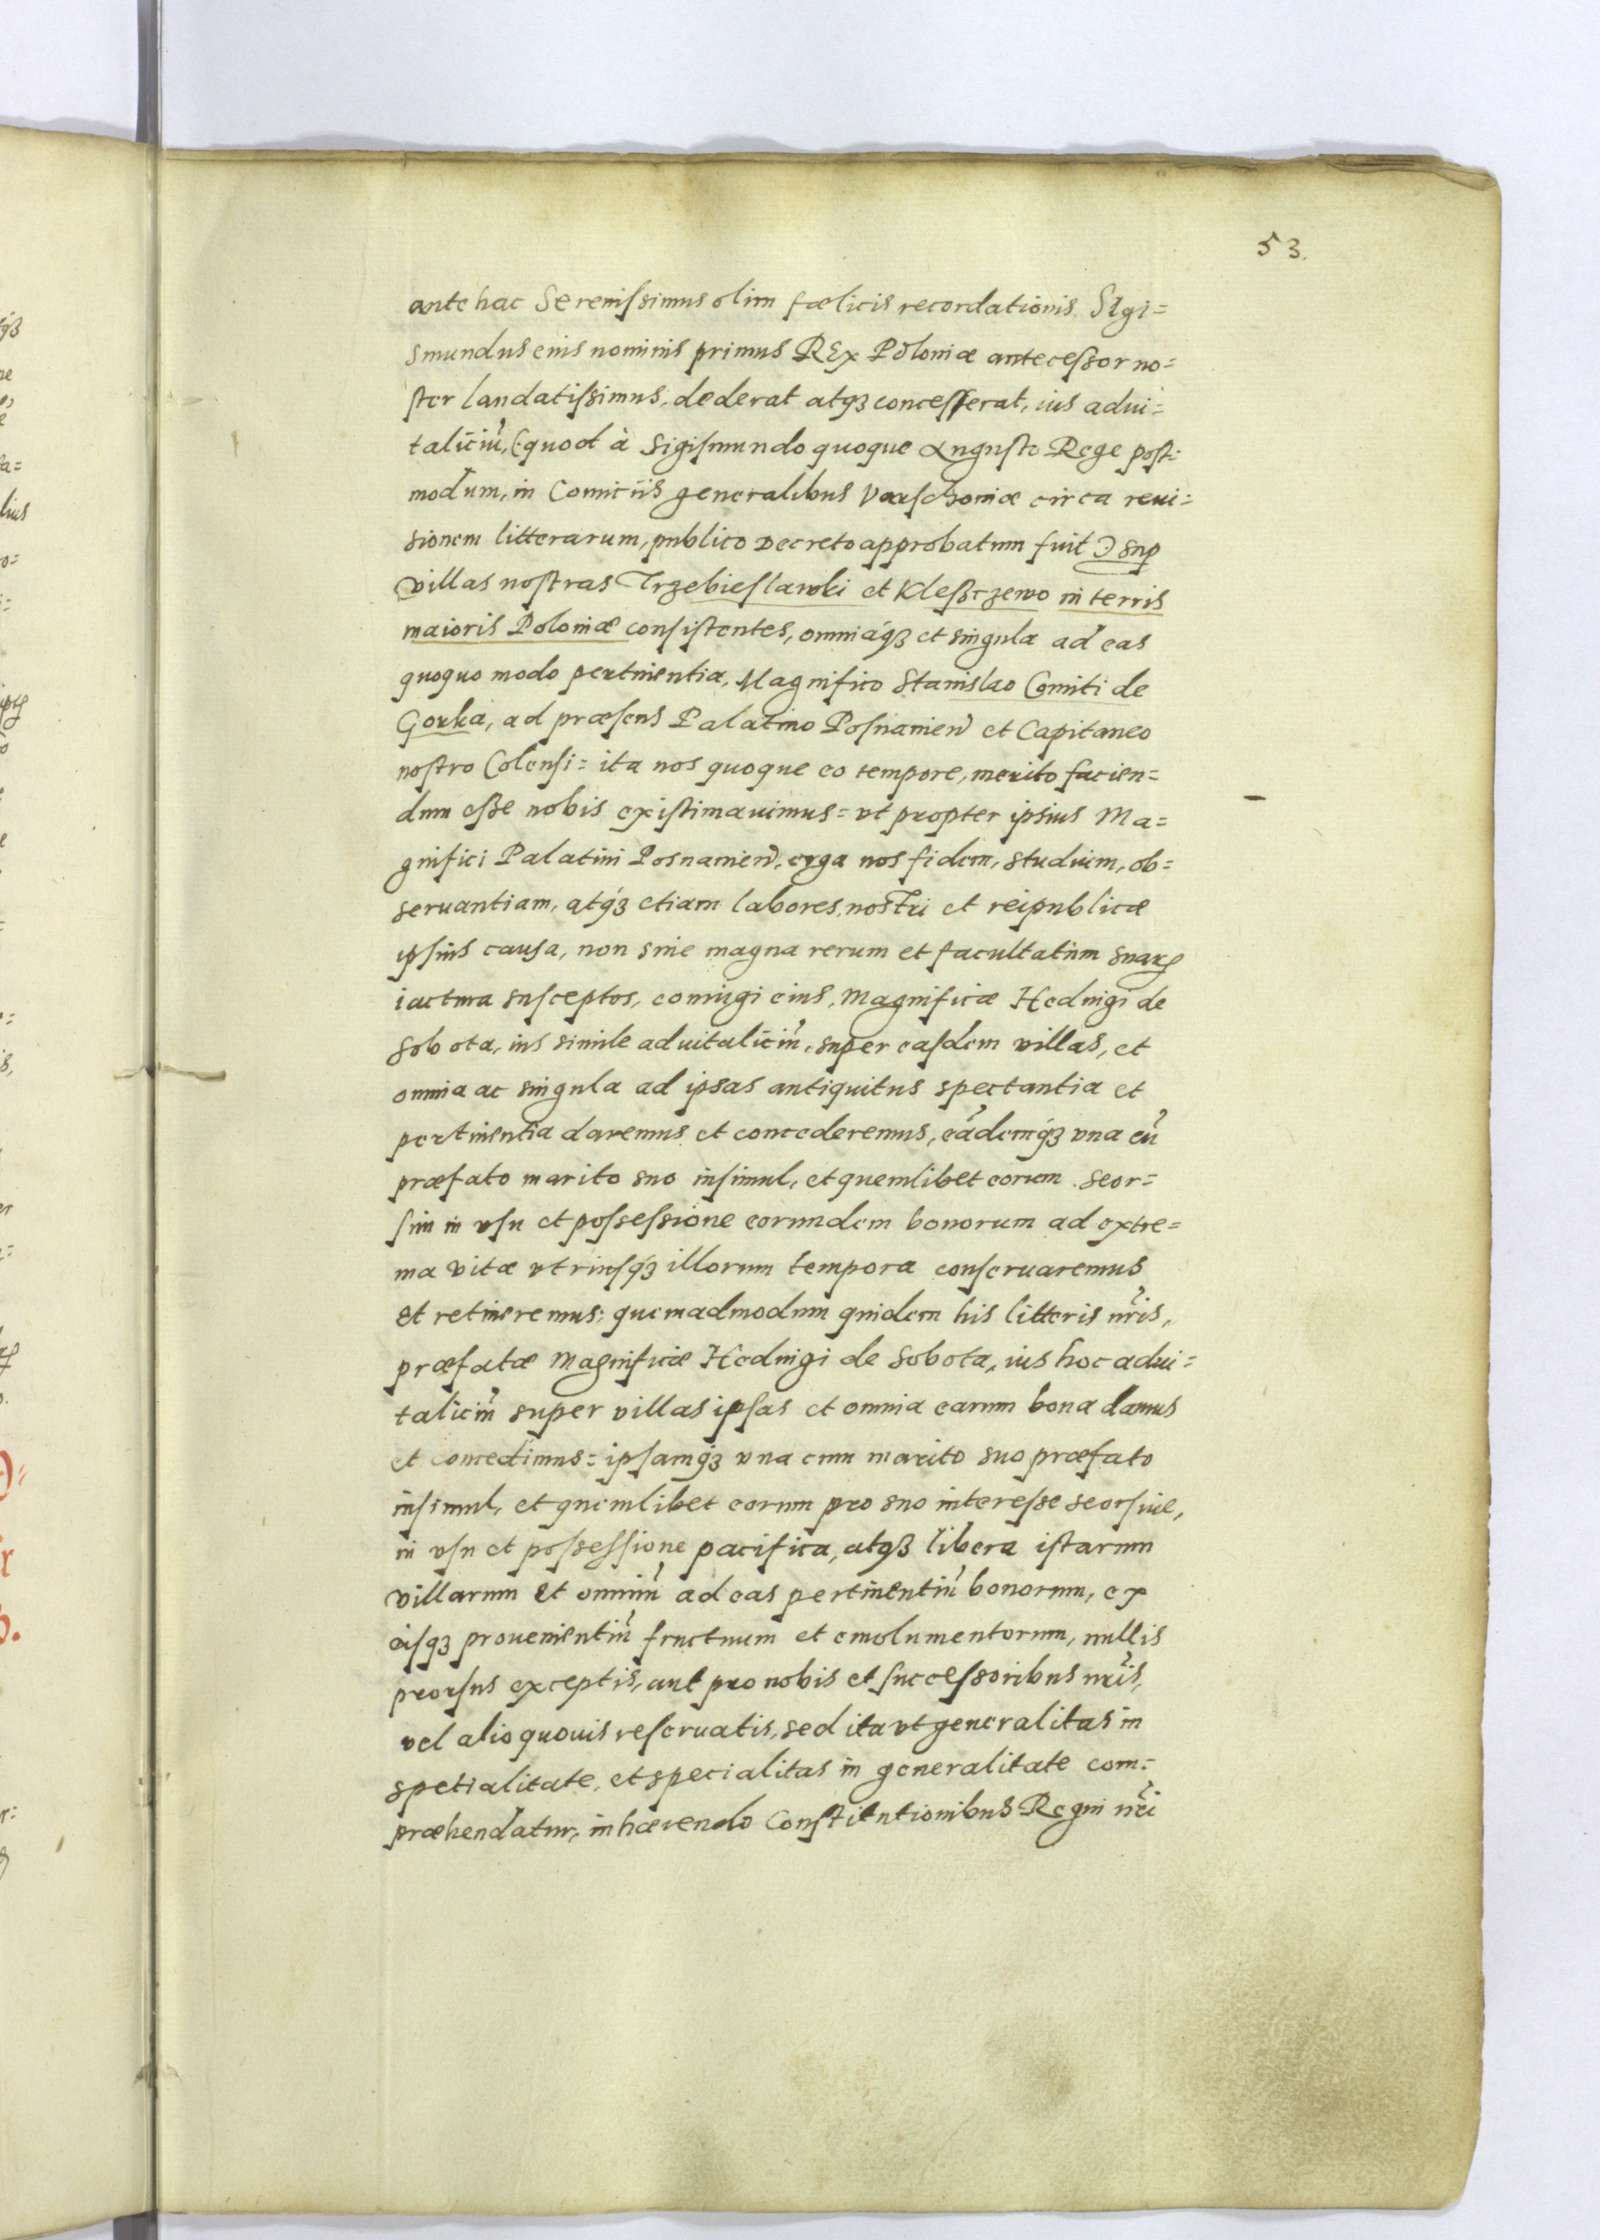 53.
ante hac Serenissimus olim fælicis recordationis SIgi=
smundus eius nominis primus REx Poloniæ antecessor no=
ster laudatissimus, dederat atqʒ concesserat, ius adui=
taliciũ, (quod à Sigismundo quoque Augusto Rege post=
modum, in Comitiis generalibus Varschoniæ circa reui=
sionem litterarum, publico Decreto approbatum fuit) sup
villas nostras Trzebieslawki et Klessczewo in terris
maioris Poloniæ consistentes, omniaqʒ et singula ad eas
quoquo modo pertinentia, Magnifico Stanislao Comiti de
Gorka, ad præsens Palatino Posnanien̄ et Capitaneo
nostro Colensi= ita nos quoque eo tempore, merito facien=
dum esse nobis existimauimus= vt propter ipsius Ma=
gnifici Palatini Posnanien̄, erga nos fidem, studium, ob=
seruantiam, atqʒ etiam labores, nostri et reipublicæ
ipsius causa, non sine magna rerum et facultatum suarꝝ
iactura susceptos, coniugi eius, Magnificæ Heduigi de
Sobota, ius simile aduitaliciũ, super easdem villas, et
omnia ac singula ad ipsas antiquitus spectantia et
pertinentia daremus et concederemus, eãdemqʒ vna cũ
præfato marito suo insimul, et quemlibet eorum seor=
sim in vsu et possessione eorundem bonorum ad extre=
ma vitæ vtriusqʒ illorum tempora conseruaremus
et retineremus: quemadmodum quidem his litteris nr̃is,
præfatæ Magnificæ Heduigi de Sobota, ius hoc adui=
taliciũ super villas ipsas et omnia earum bona damus
et concedimus= ipsamqʒ vna cum marito suo præfato
insimul, et quemlibet eorum pro suo interesse seorsiue,
in vsu et possessione pacifica, atqʒ libera istarum
villarum et omniũ ad eas pertinentiũ bonorum, ex
eisqʒ prouenientiũ fructuum et emolumentorum, nullis
prorsus exceptis, aut pro nobis et successoribus nr̃is,
vel alio quouis reseruatis, sed ita vt generalitas in
spetialitate, et specialitas in generalitate com=
præhendatur, inhærendo Constitutionibus Regni nr̃i